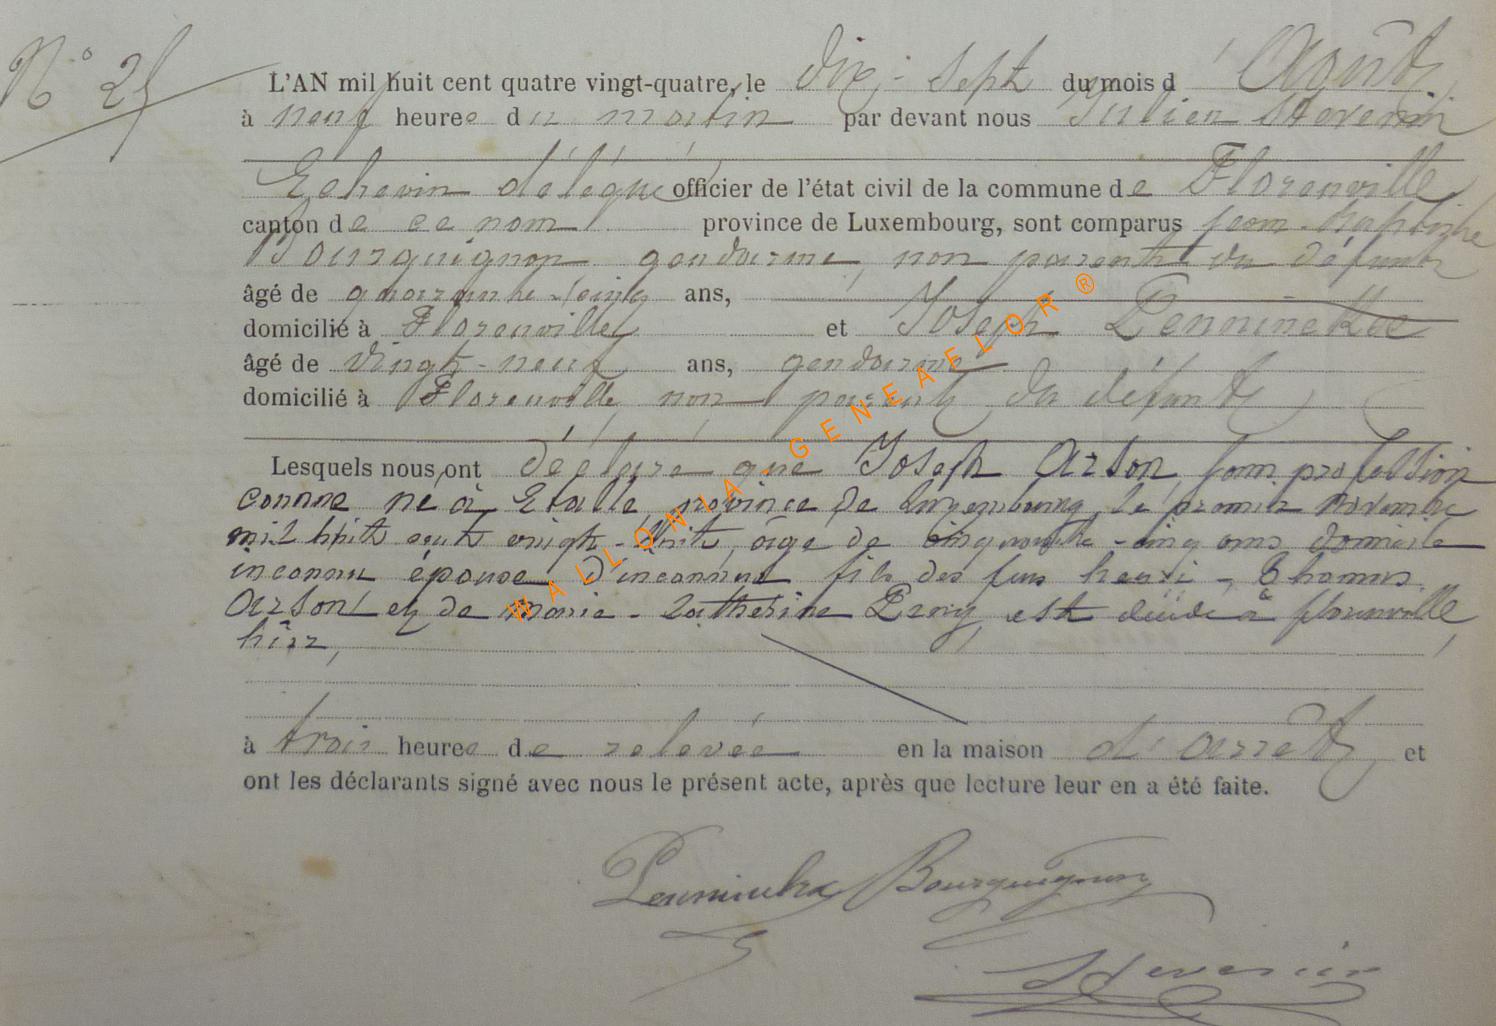 N° 25
L'AN mil huit cent quatre vingt-quatre, le dix-sept du mois d'Août
à neuf heures du matin par devant nous Julien Stevenin
Echevin délégué officier de l'état civil de la commune de Florenville
canton de ce nom province de Luxembourg, sont comparus jean-baptiste
Bourguignon gendarme, non parent du défunt
âgé de quarante-cinq ans,
domicilié à Florenville et Joseph Penninckx
âgé de vingt-neuf ans, gendarme
domicilié à Florenville non parent du défunt
Lesquels nous ont déclaré que Joseph Arson, sans profession
connue né à Etalle, province de Luxembourg, le premier novembre
mil huit cent vingt-huit, âge de cinquante-cinq ans domicile
inconnu époux d'inconnue fils des feus henri-Thomas
Arson et de Marie-Catherine Perng, est décédé à florenville,
hier,
à trois heures de relevée en la maison d'arrêt et
ont les déclarants signé avec nous le présent acte, après que lecture leur en a été faite.
Penninckx Bourguignon
Stevenin
WALLONIA GENEAELOR ®